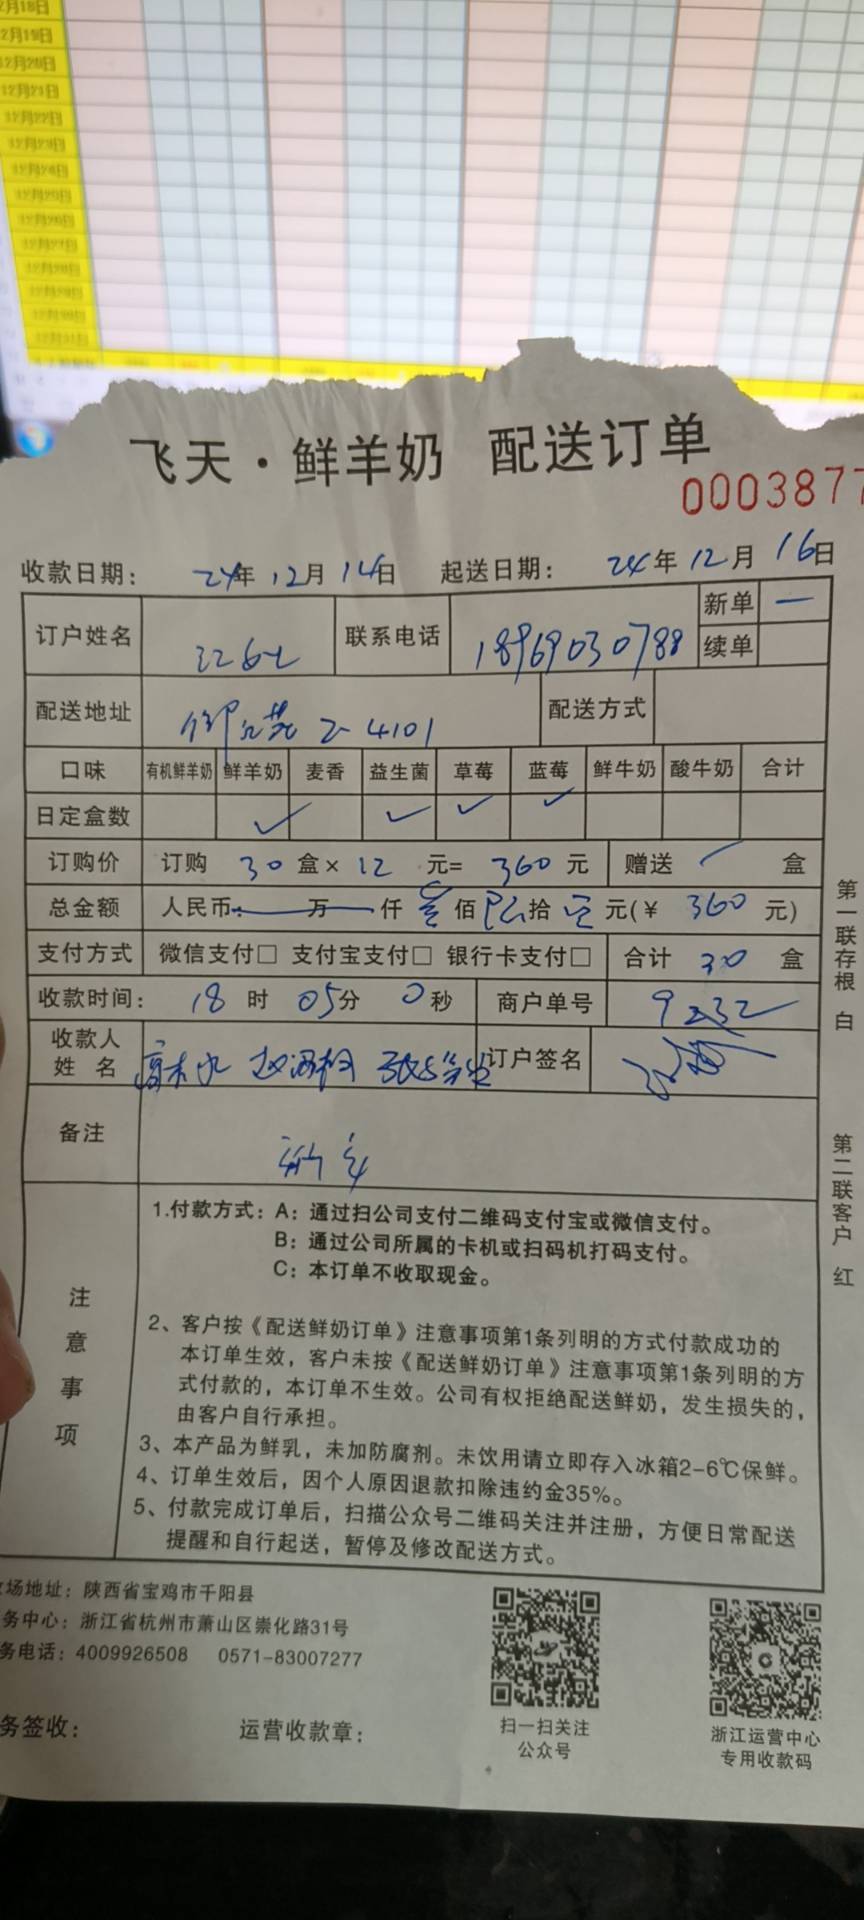 12月18日
12月19日
12月20日
12月21日
12月22日
12月23日
12月24日
12月25日
12月26日
12月27日
12月28日
12月29日
12月30日
12月31日
飞天·鲜羊奶 配送订单
0003877
收款日期: 24年12月14日 起送日期: 24年12月16日
订户姓名 江女士 联系电话 18969030788 新单 一
续单
配送地址 2-4101 配送方式
口味 有机鲜羊奶 鲜羊奶 麦香 益生菌 草莓 蓝莓 鲜牛奶 酸牛奶 合计
日定盒数 ✓ ✓ ✓ ✓
订购价 订购 30 盒× 12 元= 360 元 赠送 盒
总金额 人民币: 万 仟 叁 佰 陆 拾 元(¥ 360 元)
支付方式 微信支付□ 支付宝支付□ 银行卡支付□ 合计 30 盒
收款时间: 18 时 05分 0秒 商户单号 9232
收款人姓名 订户签名
备注
注意事项
1.付款方式:A:通过扫公司支付二维码支付宝或微信支付。
B:通过公司所属的卡机或扫码机打码支付。
C:本订单不收取现金。
2、客户按《配送鲜奶订单》注意事项第1条列明的方式付款成功的
本订单生效,客户未按《配送鲜奶订单》注意事项第1条列明的方
式付款的,本订单不生效。公司有权拒绝配送鲜奶,发生损失的,
由客户自行承担。
3、本产品为鲜乳,未加防腐剂。未饮用请立即存入冰箱2-6℃保鲜。
4、订单生效后,因个人原因退款扣除违约金35%。
5、付款完成订单后,扫描公众号二维码关注并注册,方便日常配送
提醒和自行起送,暂停及修改配送方式。
第一联存根 白
第二联客户 红
场地址:陕西省宝鸡市千阳县
务中心:浙江省杭州市萧山区崇化路31号
务电话:4009926508 0571-83007277
务签收: 运营收款章:
扫一扫关注
公众号
浙江运营中心
专用收款码